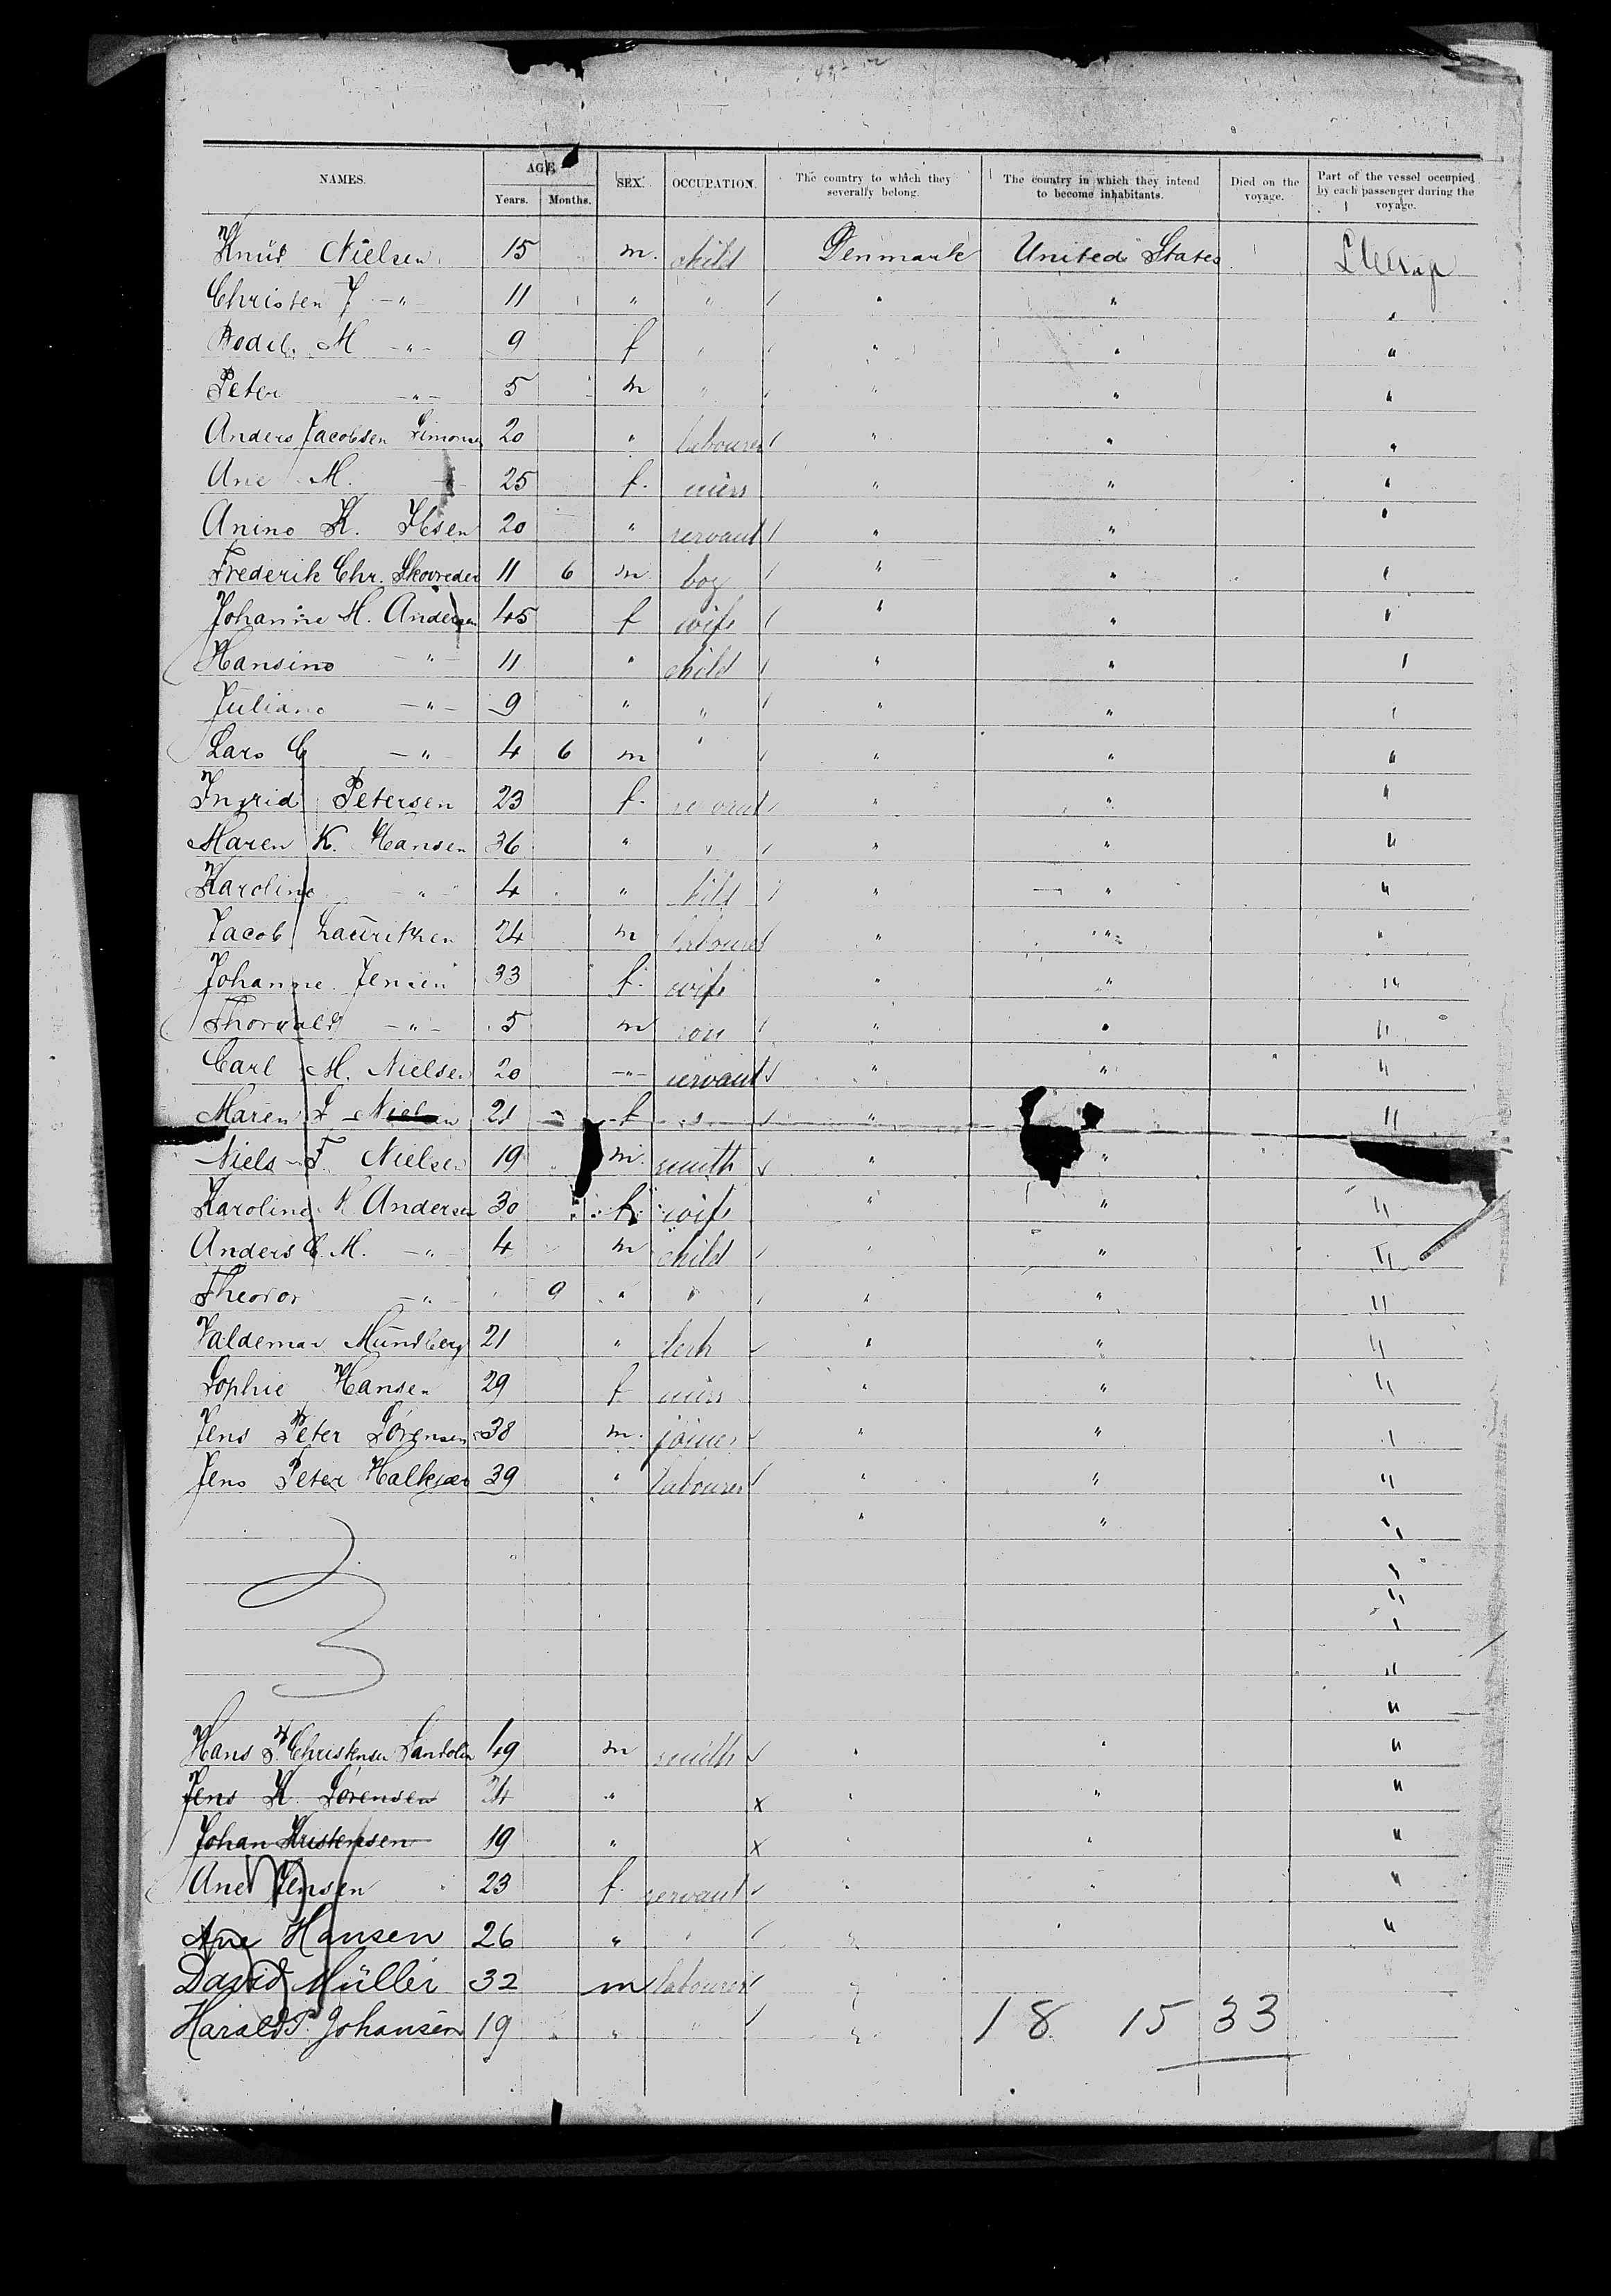 NAMES. AGE. SEX. OCCUPATION. The country to which they severally belong. The country in which they intend to become inhabitants. Died on the voyage. Part of the vessel occupied by each passenger during the voyage.
Years. Months.
Knud Nielsen 15 m. child Denmark United States
Christen J -"- 11 " " " "
Bodil M -"- 9 f " " " "
Peter -"- 5 m " " " "
Anders Jacobsen Simonsen 20 " labourer " " "
Ane M. 25 f. miss " " "
Anine K. Ibsen 20 " servant " "
Frederik Chr. Skovreder 11 6 m boy " " "
Johanne M. Andersen 45 f wife " " "
Hansine -"- 11 " child " " "
Juliane -"- 9 " " " " "
Lars C -"- 4 6 m " " " "
Ingrid Petersen 23 f. servant " " "
Maren K. Hansen 36 " " " " "
Karoline " 4 " child " " "
Jacob Lauritsen 24 m labourer " " "
Johanne Jensen 33 f. wife " " "
Thorvald -"- 5 m son " " "
Carl M. Nielsen 20 -"- servant " " "
Maren 21 f " " "
Niels F. Nielsen 19 m. smith " "
Karoline K Andersen 30 f. wife " " "
Anders C. M. -"- 4 m child " " "
Theodor -"- 9 " " " " "
Valdemar Mundberg 21 " clerk " " "
Sophie Hansen 29 f. miss " " "
Jens Peter Sörensen 38 m. joiner " " "
Jens Peter Halkjær 39 " labourer " " "
" " "
"
"
"
"
"
Hans P. Christensen 49 m smith " " "
Jens K. Sørensen 24 " x " " "
Johan Kristensen 19 " x " " "
Ane Jensen 23 f. servant " " "
Ane Hansen 26 " " " " "
David Müller 32 m labourer "
Harald P. Johansen 19 " " " 18 15 33